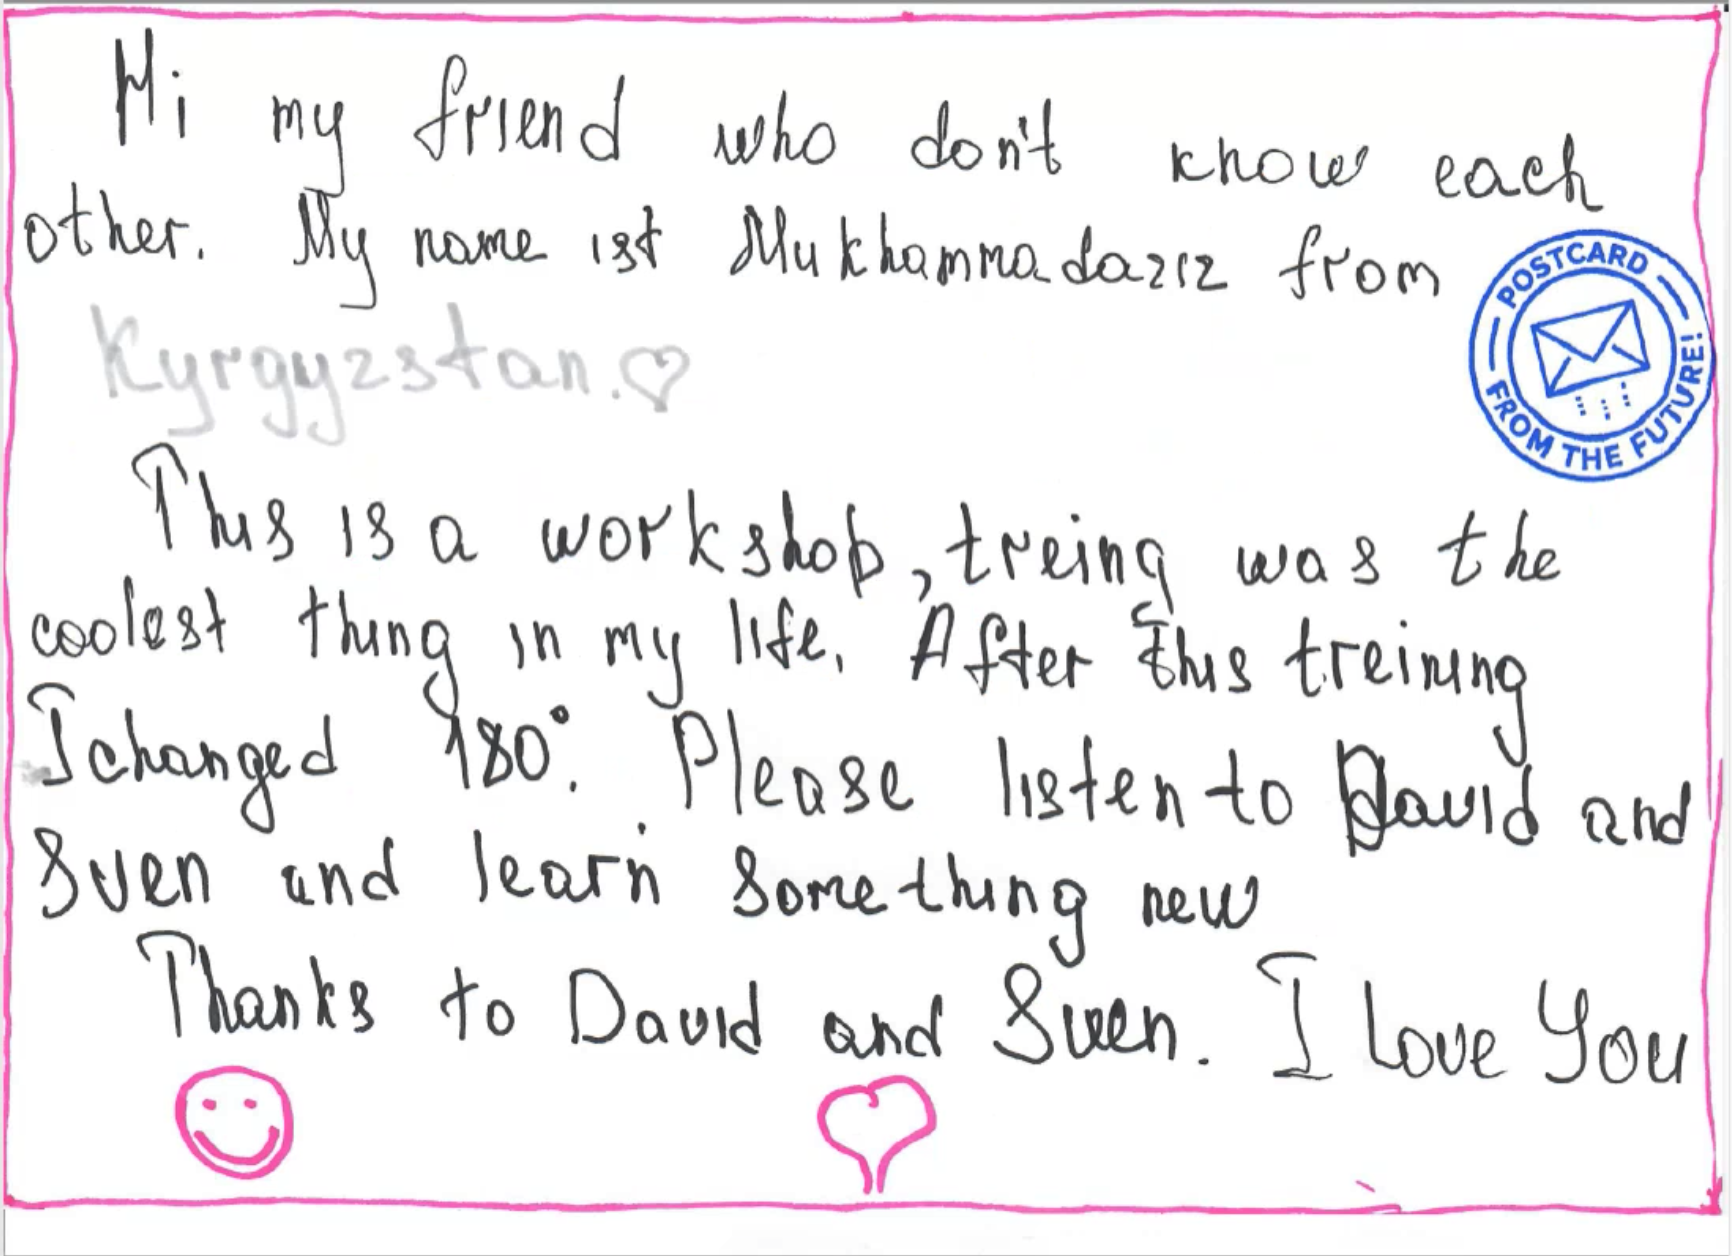 Hi my friend who don't know each
other. My name ist Mukhammadaziz from
Kyrgyzstan.♡
POSTCARD
FROM THE FUTURE!
This is a workshop, treing was the
coolest thing in my life. After this treining
I changed 180°. Please listen to David and
Sven and learn something new
Thanks to David and Sven. I Love You